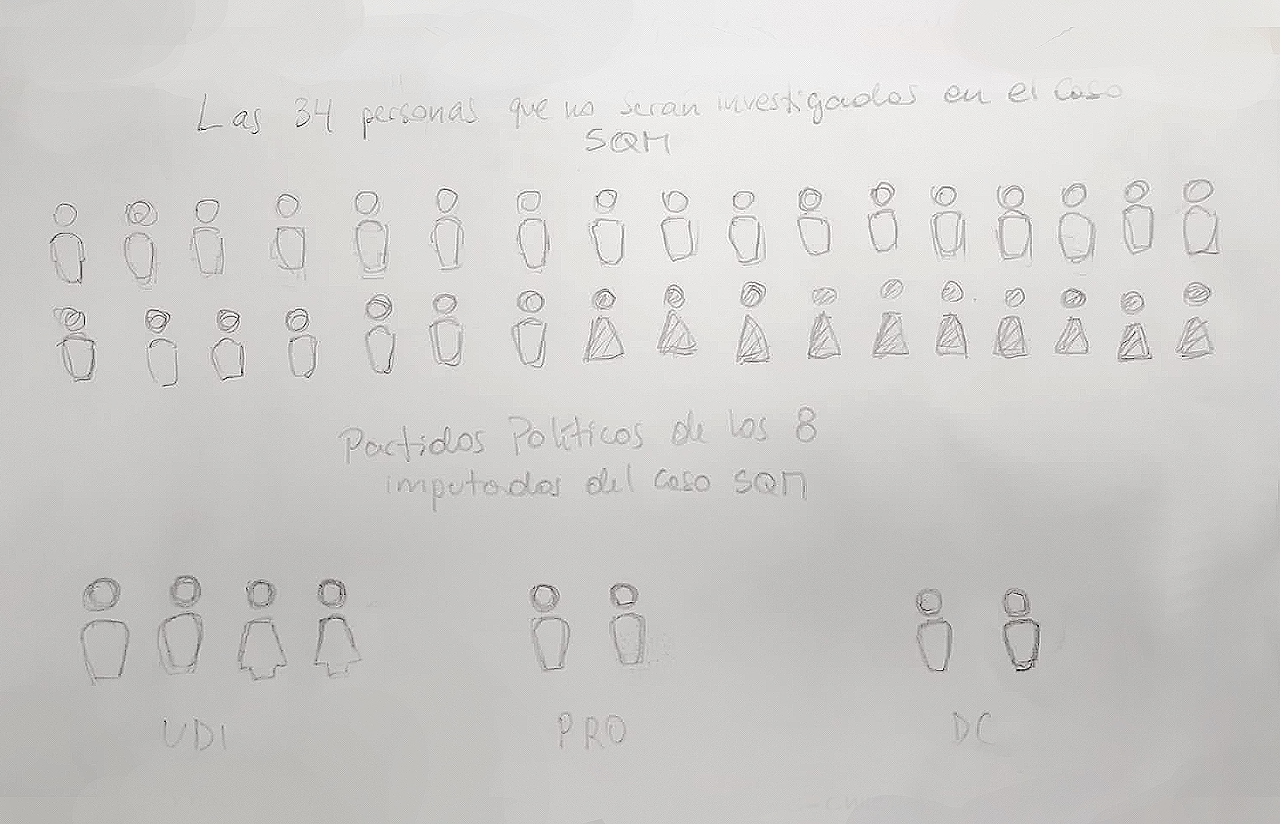 Las 34 personas que no serán investigados en el caso
SQM
Partidos Políticos de los 8
imputados del caso SQM
UDI
PRO
DC